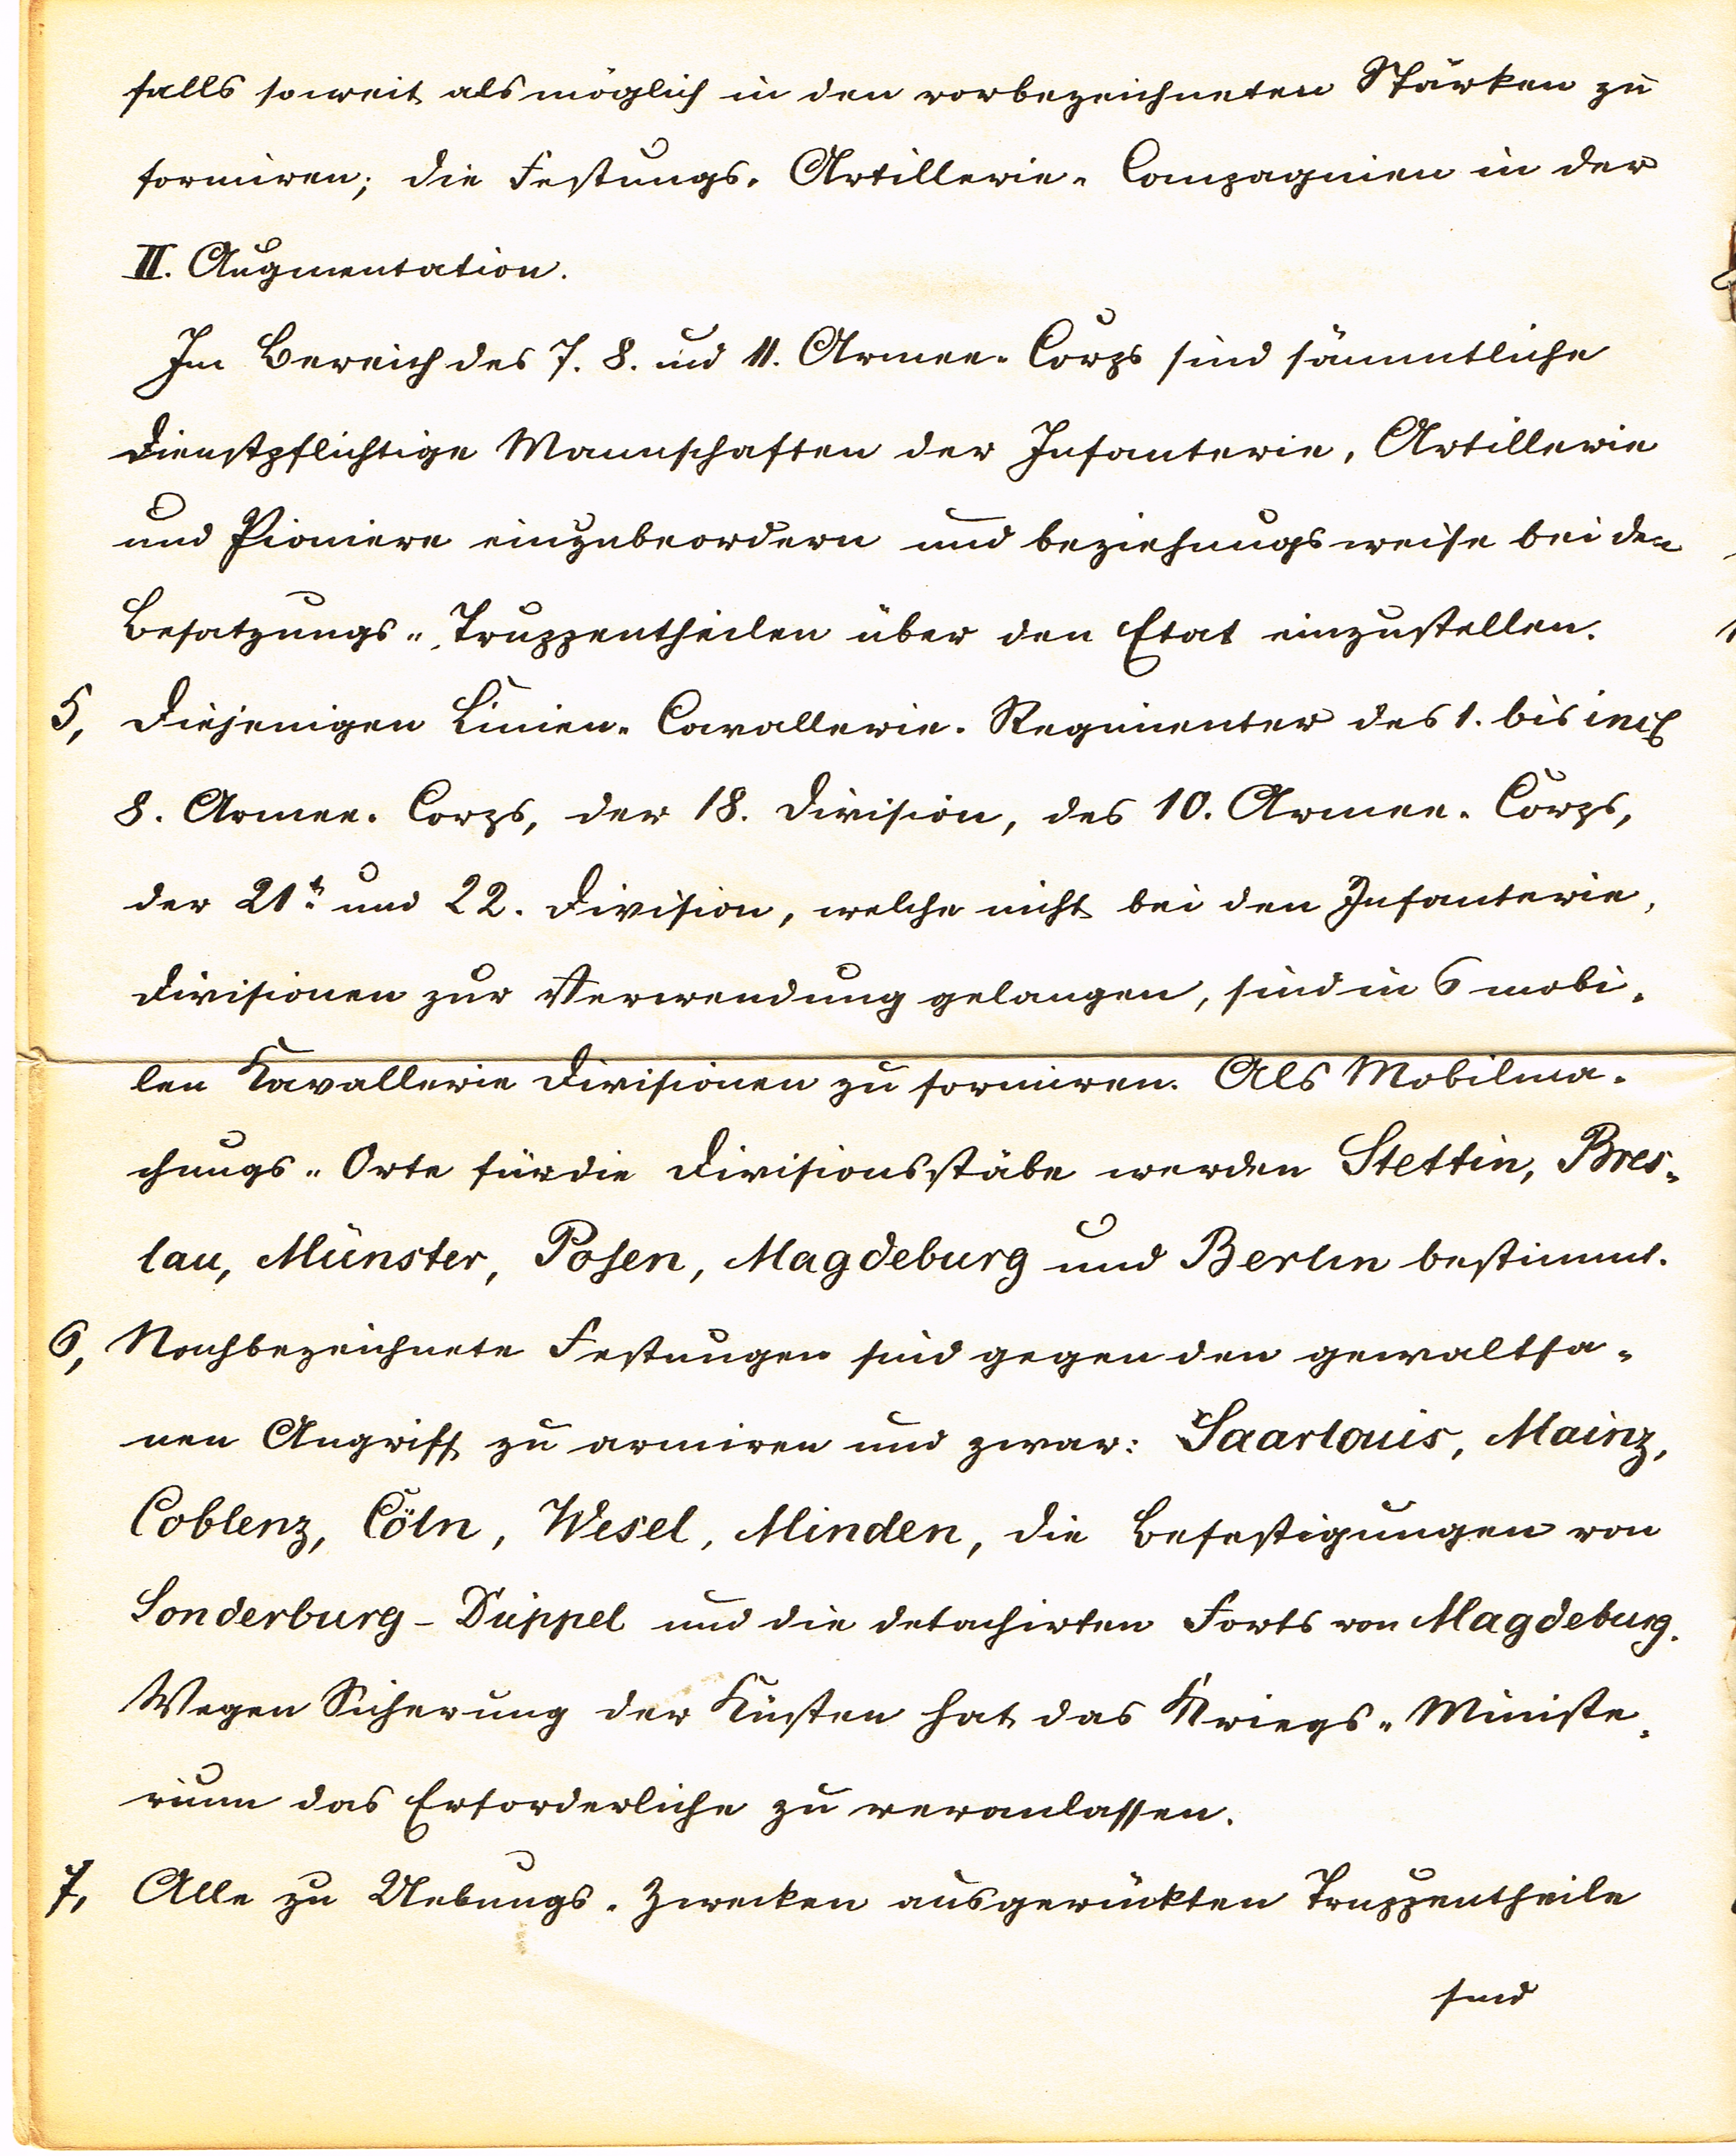 falls soweit als möglich in den vorbezeichneten Stärken zu
formiren; die Festungs-Artillerie-Compagnien in der
II. Augmentation.
Im Bereich des 7. 8. und 11. Armee-Corps sind sämmtliche
dienstpflichtige Mannschaften der Infanterie, Artillerie
und Pioniere einzubeordern und beziehungsweise bei den
Besatzungs-Truppentheilen über den Etat einzustellen.
5, Diejenigen Linien-Cavallerie-Regimenter des 1. bis incl
8. Armee-Corps, der 18. Division, des 10. Armee-Corps,
der 21t. und 22. Division, welche nicht bei den Infanterie-
Divisionen zur Verwendung gelangen, sind in 6 mobi-
len Kavallerie Divisionen zu formiren. Als Mobilma-
chungs-Orte für die Divisionsstäbe werden Stettin, Bres-
lau, Münster, Posen, Magdeburg und Berlin bestimmt.
6, Nachbezeichnete Festungen sind gegen den gewaltsa-
men Angriff zu armiren und zwar: Saarlouis, Mainz,
Coblenz, Cöln, Wesel, Minden, die Befestigungen von
Sonderburg-Düppel und die detachirten Forts von Magdeburg.
Wegen Sicherung der Küsten hat das Kriegs-Ministe-
rium das Erforderliche zu veranlassen.
7, Alle zu Uebungs-Zwecken ausgerückten Truppentheile
sind